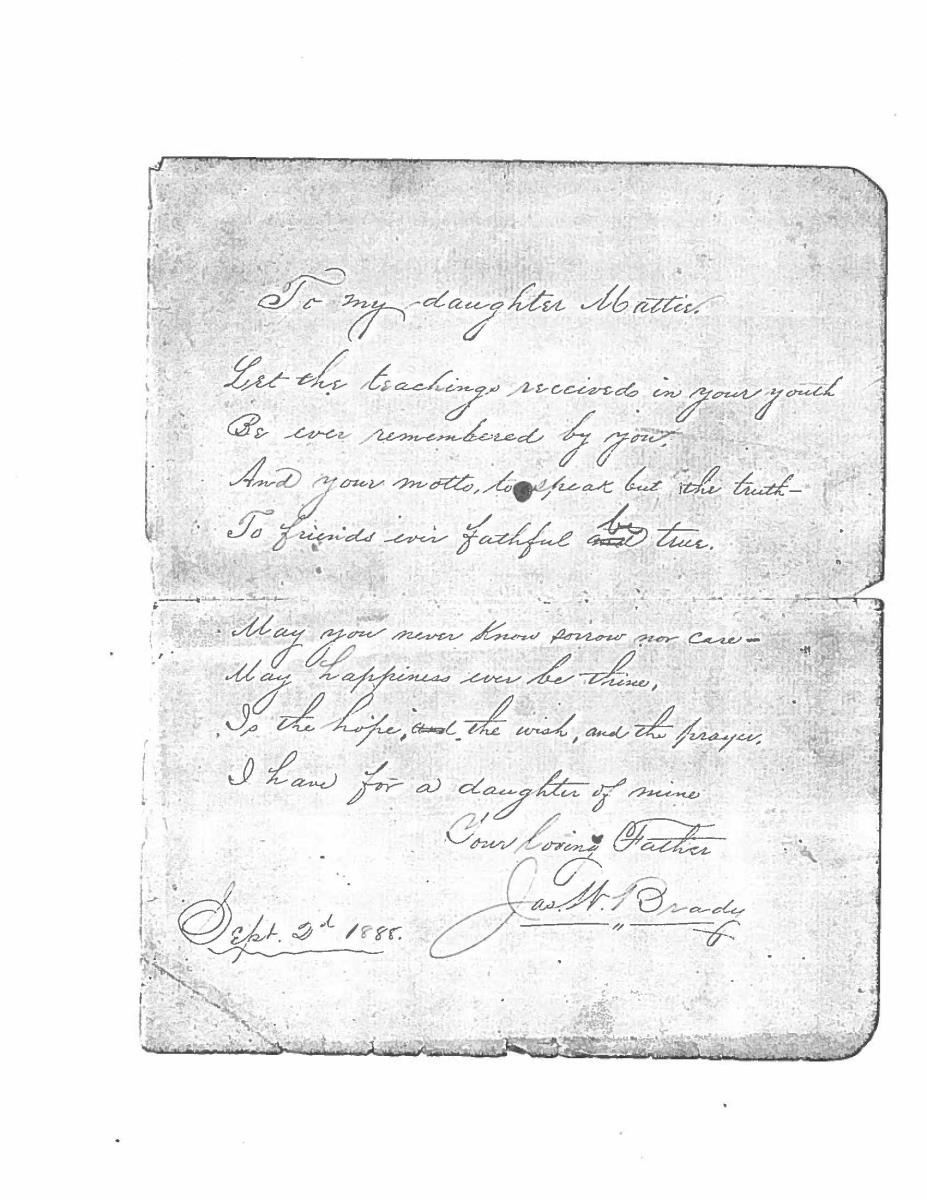 To my daughter Mattie.
Let the teachings received in your youth
Be ever remembered by you,
And your motto, to speak but the truth—
To friends ever fathful be true.
May you never know sorrow nor care—
May happiness ever be thine,
Is the hope, and the wish, and the prayer,
I have for a daughter of mine
Your loving Father
Jas. W. Brady
Sept. 2d 1888.